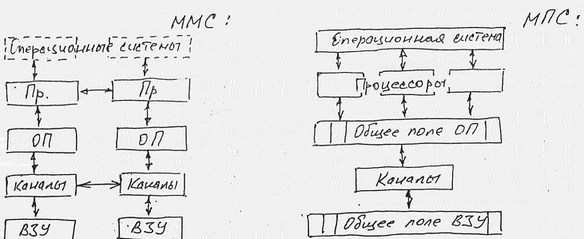 ММС:
МПС:
Операционные системы
Операционная система
Пр.
Пр
Процессоры
ОП
ОП
Общее поле ОП
Каналы
Каналы
Каналы
ВЗУ
ВЗУ
Общее поле ВЗУ